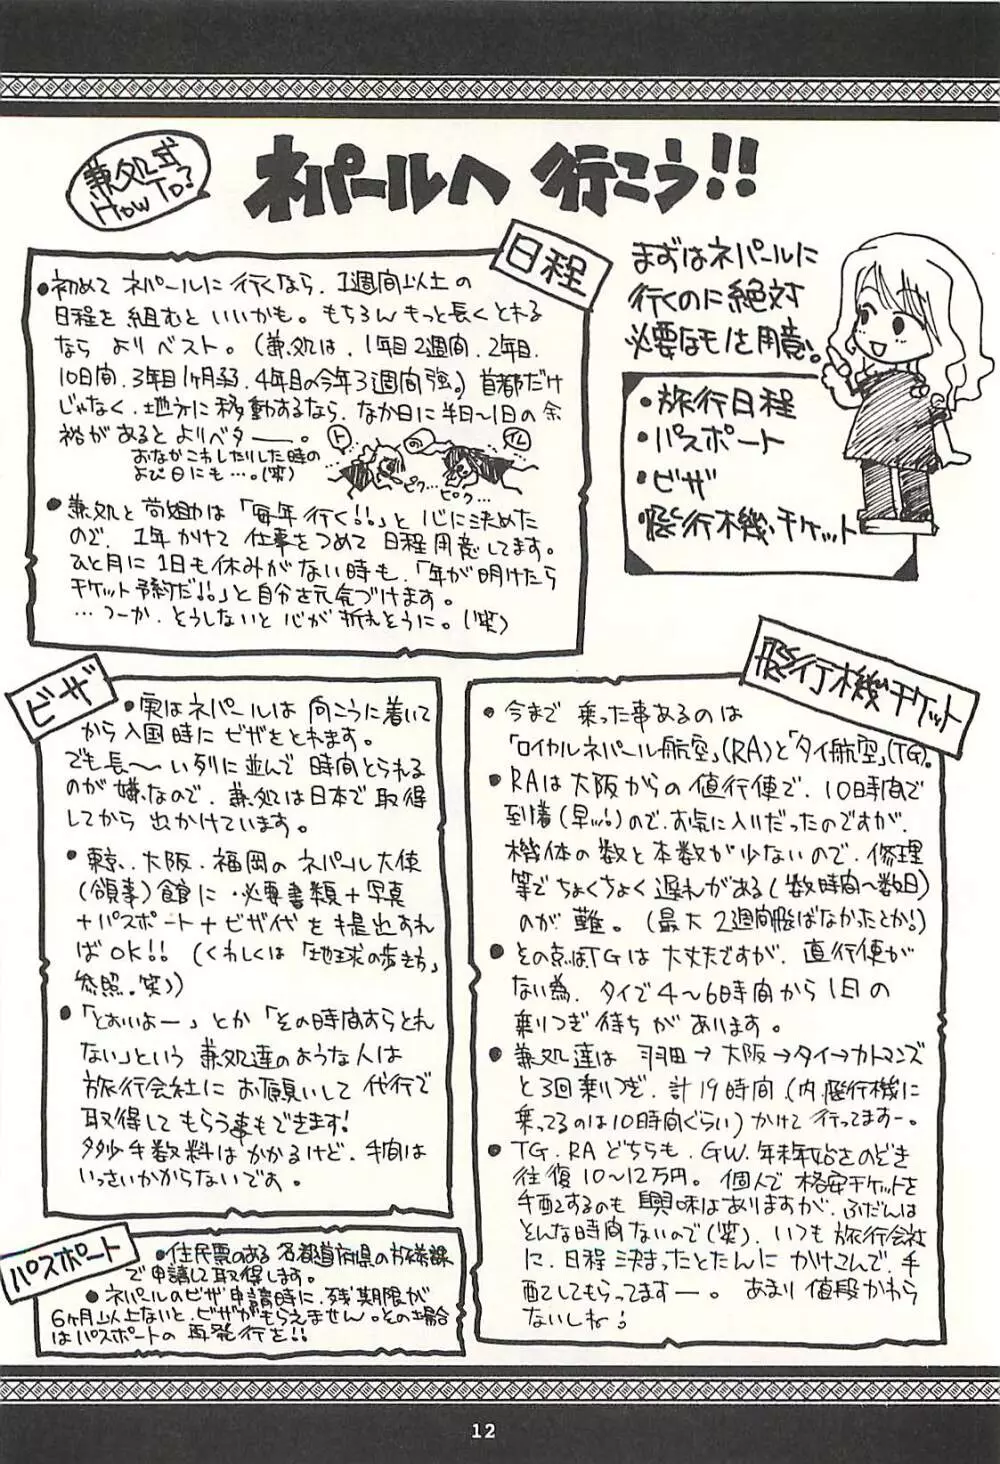 兼処式
HOW TO?
ネパールへ 行こう!!
まずはネパールに
行くのに絶対
必要なモノを用意。
・旅行日程
・パスポート
・ビザ
・飛行機チケット
日程
●初めて ネパールに 行くなら、1週間以上の
日程を組むと いいかも。もちろん もっと長く とれる
なら よりベスト。(兼処は、1年目2週間、2年目
10日間、3年目1ヶ月弱、4年目の今年3週間強。) 首都だけ
じゃなく、地方に移動するなら、なか日に半日〜1日の余
裕があると よりベター。
おなかこわしたりした時の
よび日にも…。(笑)
ト の イレ
ピク… ピク…
●兼処と は「毎年行く!!」と 心に決めた
ので、1年かけて 仕事をつめて 日程用意してます。
ひと月に 1日も休みがない時も、「年が明けたら
チケット予約だ!!」と自分を元気づけます。
…つーか、そうしないと 心が 折れそうに。(笑)
ビザ
●実はネパールは 向こうに着いて
から入国時に ビザをとれます。
でも長〜い列に並んで 時間とられる
のが嫌なので、兼処は日本で取得
してから 出かけています。
●東京、大阪、福岡の ネパール大使
(領事)館に 必要書類+写真
+パスポート+ビザ代を提出すれ
ばOK!! (くわしくは「地球の歩き方」
参照。笑)
●「とおいよー」とか「その時間すらとれ
ない」という 兼処達のような人は
旅行会社に お願いして 代行で
取得して もらう事もできます!
多少手数料は かかるけど、手間は
いっさいかからないです。
パスポート
●住民票のある 各都道府県の旅券課
で申請して取得します。
●ネパールのビザ申請時に、残期限が
6ヶ月以上ないと、ビザがもらえません。その場合
はパスポートの 再発行を!!
飛行機チケット
●今まで 乗った事あるのは
「ロイヤルネパール航空」(RA)と「タイ航空」(TG)。
●RAは大阪からの 値行便で、10時間で
到着(早ッ!)ので、お気に入りだったのですが、
機体の数と本数が少ないので、修理
等でちょくちょく遅れがある(数時間〜数日)
のが 難。(最大 2週間飛ばなかったとか!)
●その点はTGは 大丈夫ですが、直行便が
ない為、タイで4〜6時間から1日の
乗りつぎ待ちが あります。
●兼処達は 羽田→大阪→タイ→カトマンズ
と3回乗りつぎ、計19時間(内、飛行機に
乗ってるのは10時間ぐらい)かけて 行ってますー。
●TG、RA どちらも、GW、年末年始をのぞき
往復10〜12万円。個人で 格安チケットを
手配するのも 興味はありますが、ふだんは
そんな時間ないので(笑)、いつも 旅行会社
に、日程 決まったとたんに かけこんで、手
配してもらってますー。 あまり 値段かわら
ないしね!
12